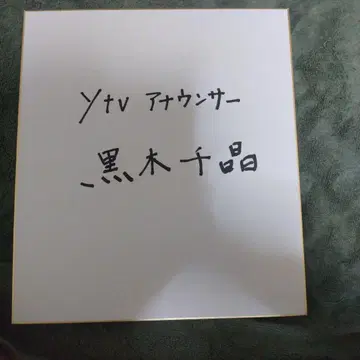 ytv アナウンサー
黒木千晶